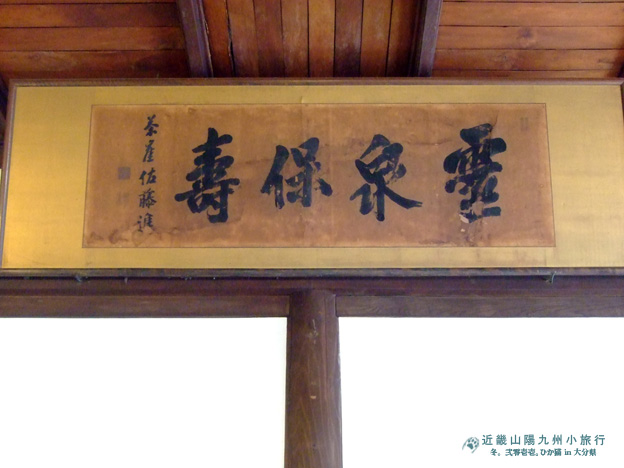 靈泉保壽
茶崖佐藤進
近畿山陽九州小旅行
冬。弐零壱壱。ひか猫 in 大分県